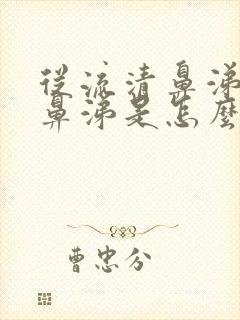 從流清鼻涕
鼻涕是怎麼
曹忠分